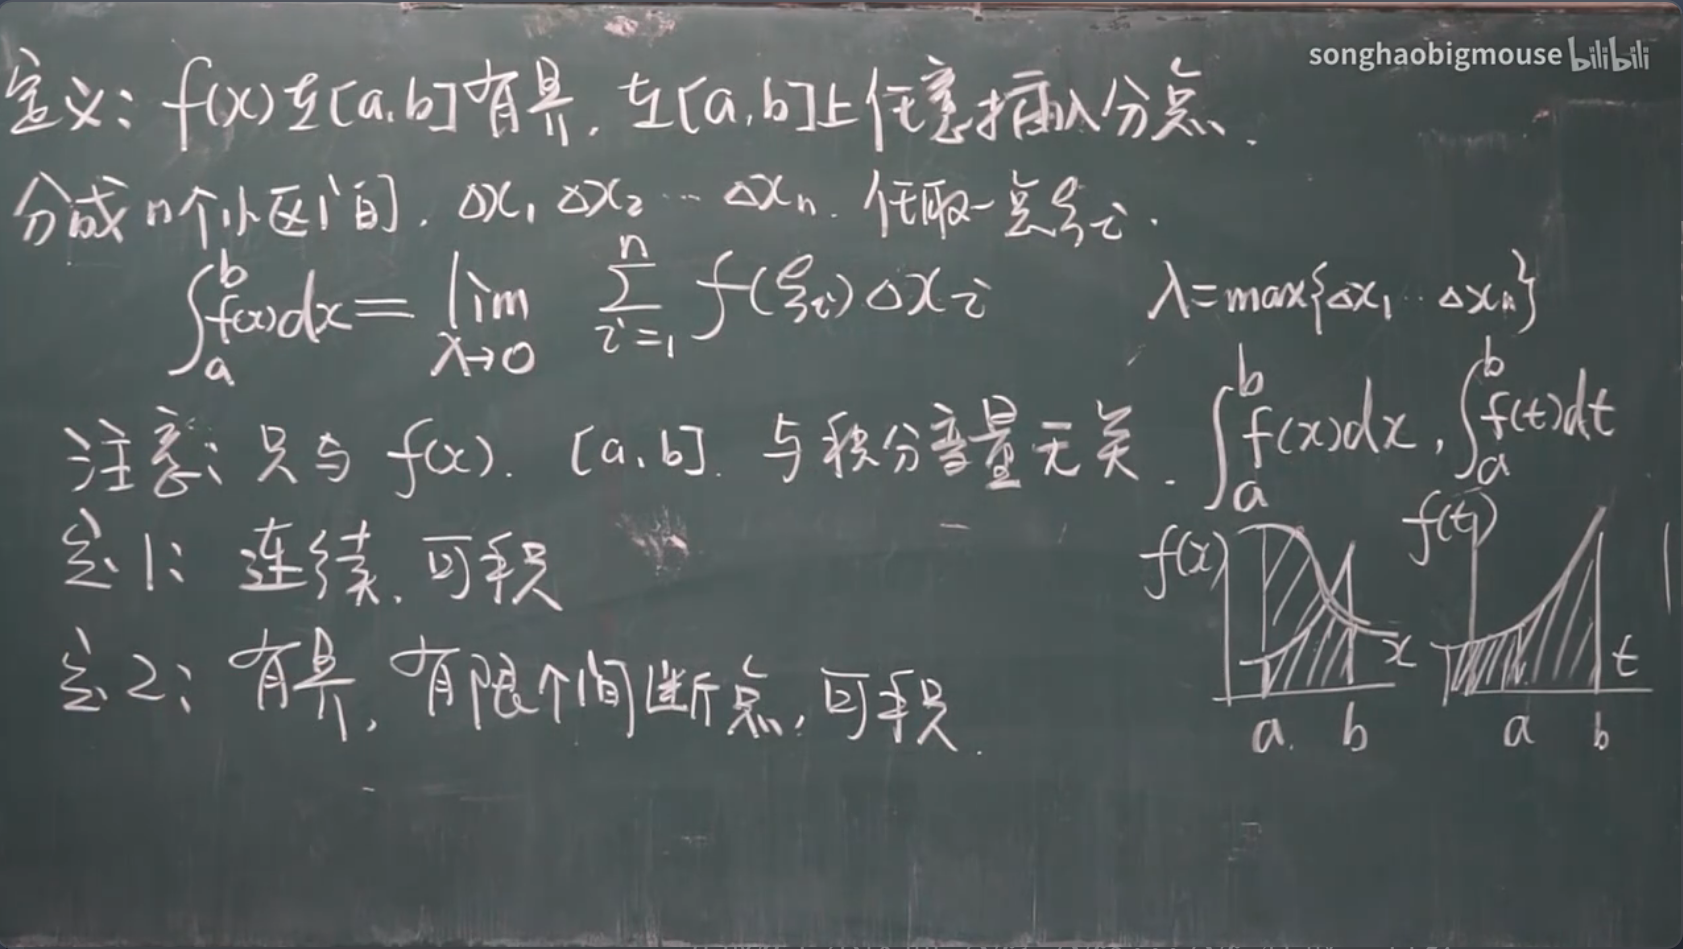 songhaobigmouse bilibili
定义: f(x)在[a,b]有界, 在[a,b]上任意插入分点.
分成n个小区间. Δx₁ Δx₂ … Δxₙ. 任取一点ξᵢ.
∫ₐᵇ f(x)dx = lim_{λ→0} ∑_{i=1}^{n} f(ξᵢ)Δxᵢ λ=max{Δx₁ … Δxₙ}
注意: 只与 f(x). [a,b]. 与积分变量无关. ∫ₐᵇ f(x)dx, ∫ₐᵇ f(t)dt
定1: 连续, 可积
定2: 有界, 有限个间断点, 可积.
f(x) x a b
f(t) t a b